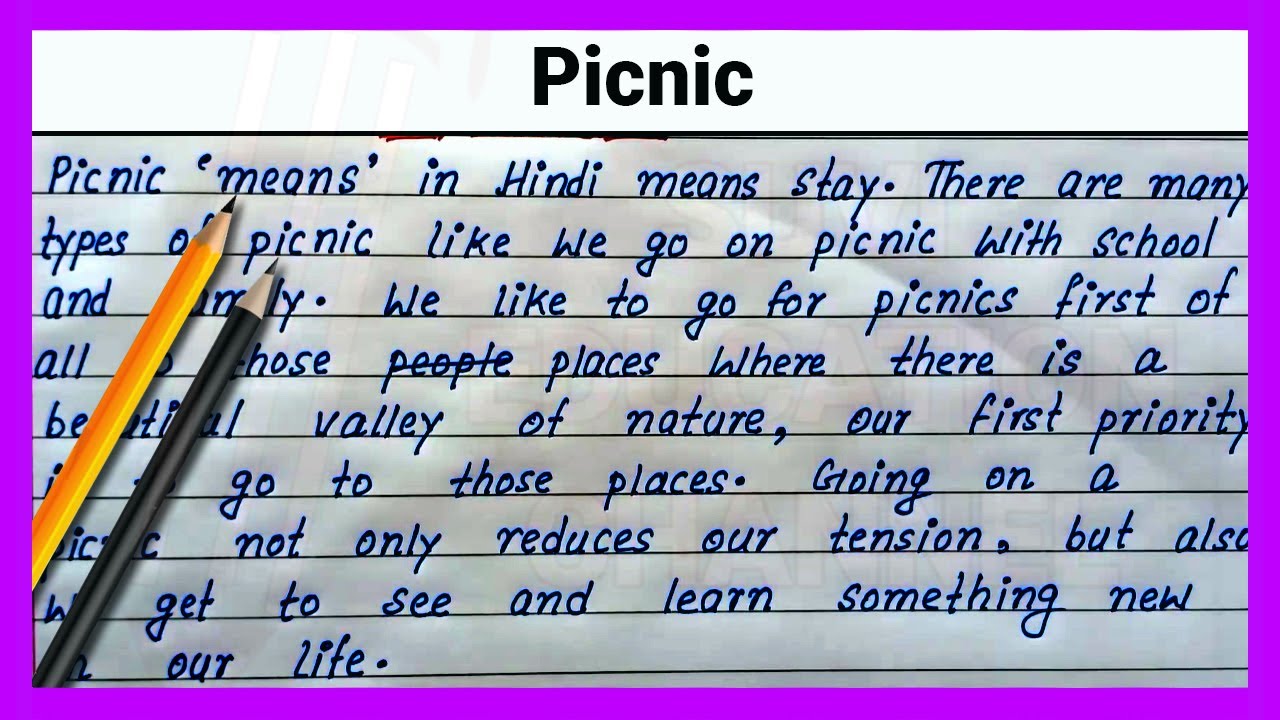 Picnic
Picnic 'means' in Hindi means stay. There are many
types of picnic like we go on picnic with school
and family. We like to go for picnics first of
all those people places where there is a
beautiful valley of nature, our first priority
go to those places. Going on a
picnic not only reduces our tension, but also
we get to see and learn something new
in our life.